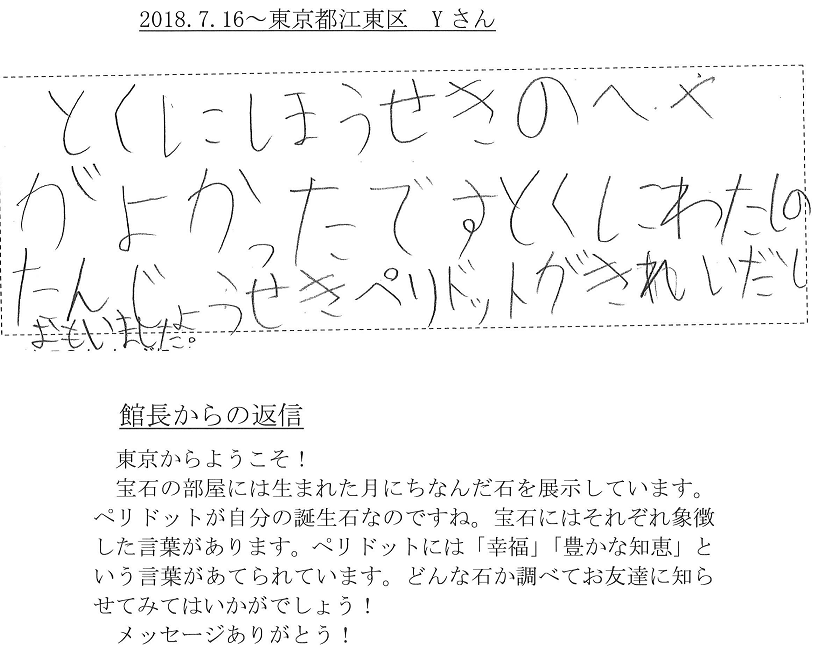 2018.7.16～東京都江東区　Yさん
とくにほうせきのへや
がよかったですとくにわたしの
たんじょうせきペリドットがきれいだし
おもいました。
館長からの返信
東京からようこそ！
宝石の部屋には生まれた月にちなんだ石を展示しています。
ペリドットが自分の誕生石なのですね。宝石にはそれぞれ象徴
した言葉があります。ペリドットには「幸福」「豊かな知恵」と
いう言葉があてられています。どんな石か調べてお友達に知ら
せてみてはいかがでしょう！
メッセージありがとう！